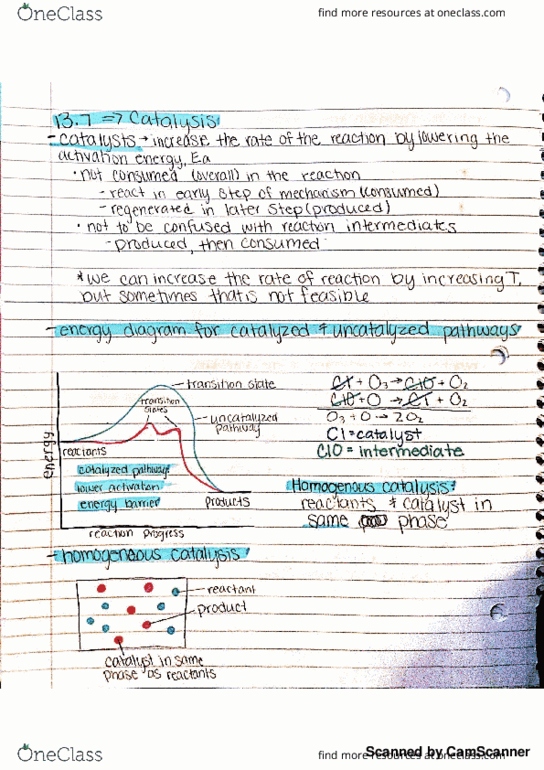 OneClass
find more resources at oneclass.com
13.7 => Catalysis:
- catalysts → increase the rate of the reaction by lowering the
activation energy, Ea
• not consumed (overall) in the reaction
- react in early step of mechanism (consumed)
- regenerated in later step (produced)
• not to be confused with reaction intermediates
- produced, then consumed
*we can increase the rate of reaction by increasing T,
but sometimes that is not feasible
- energy diagram for catalyzed & uncatalyzed pathways
transition state
transition
states
uncatalyzed
pathway
energy
reactants
catalyzed pathway
lower activation
energy barrier
products
reaction progress
Cl + O₃ → ClO + O₂
ClO + O → Cl + O₂
O₃ + O → 2O₂
Cl = catalyst
ClO = intermediate
Homogenous catalysis:
reactants & catalyst in
same phase
- homogeneous catalysis:
reactant
product
catalyst in same
phase as reactants
OneClass
find more resources at oneclass.com
Scanned by CamScanner